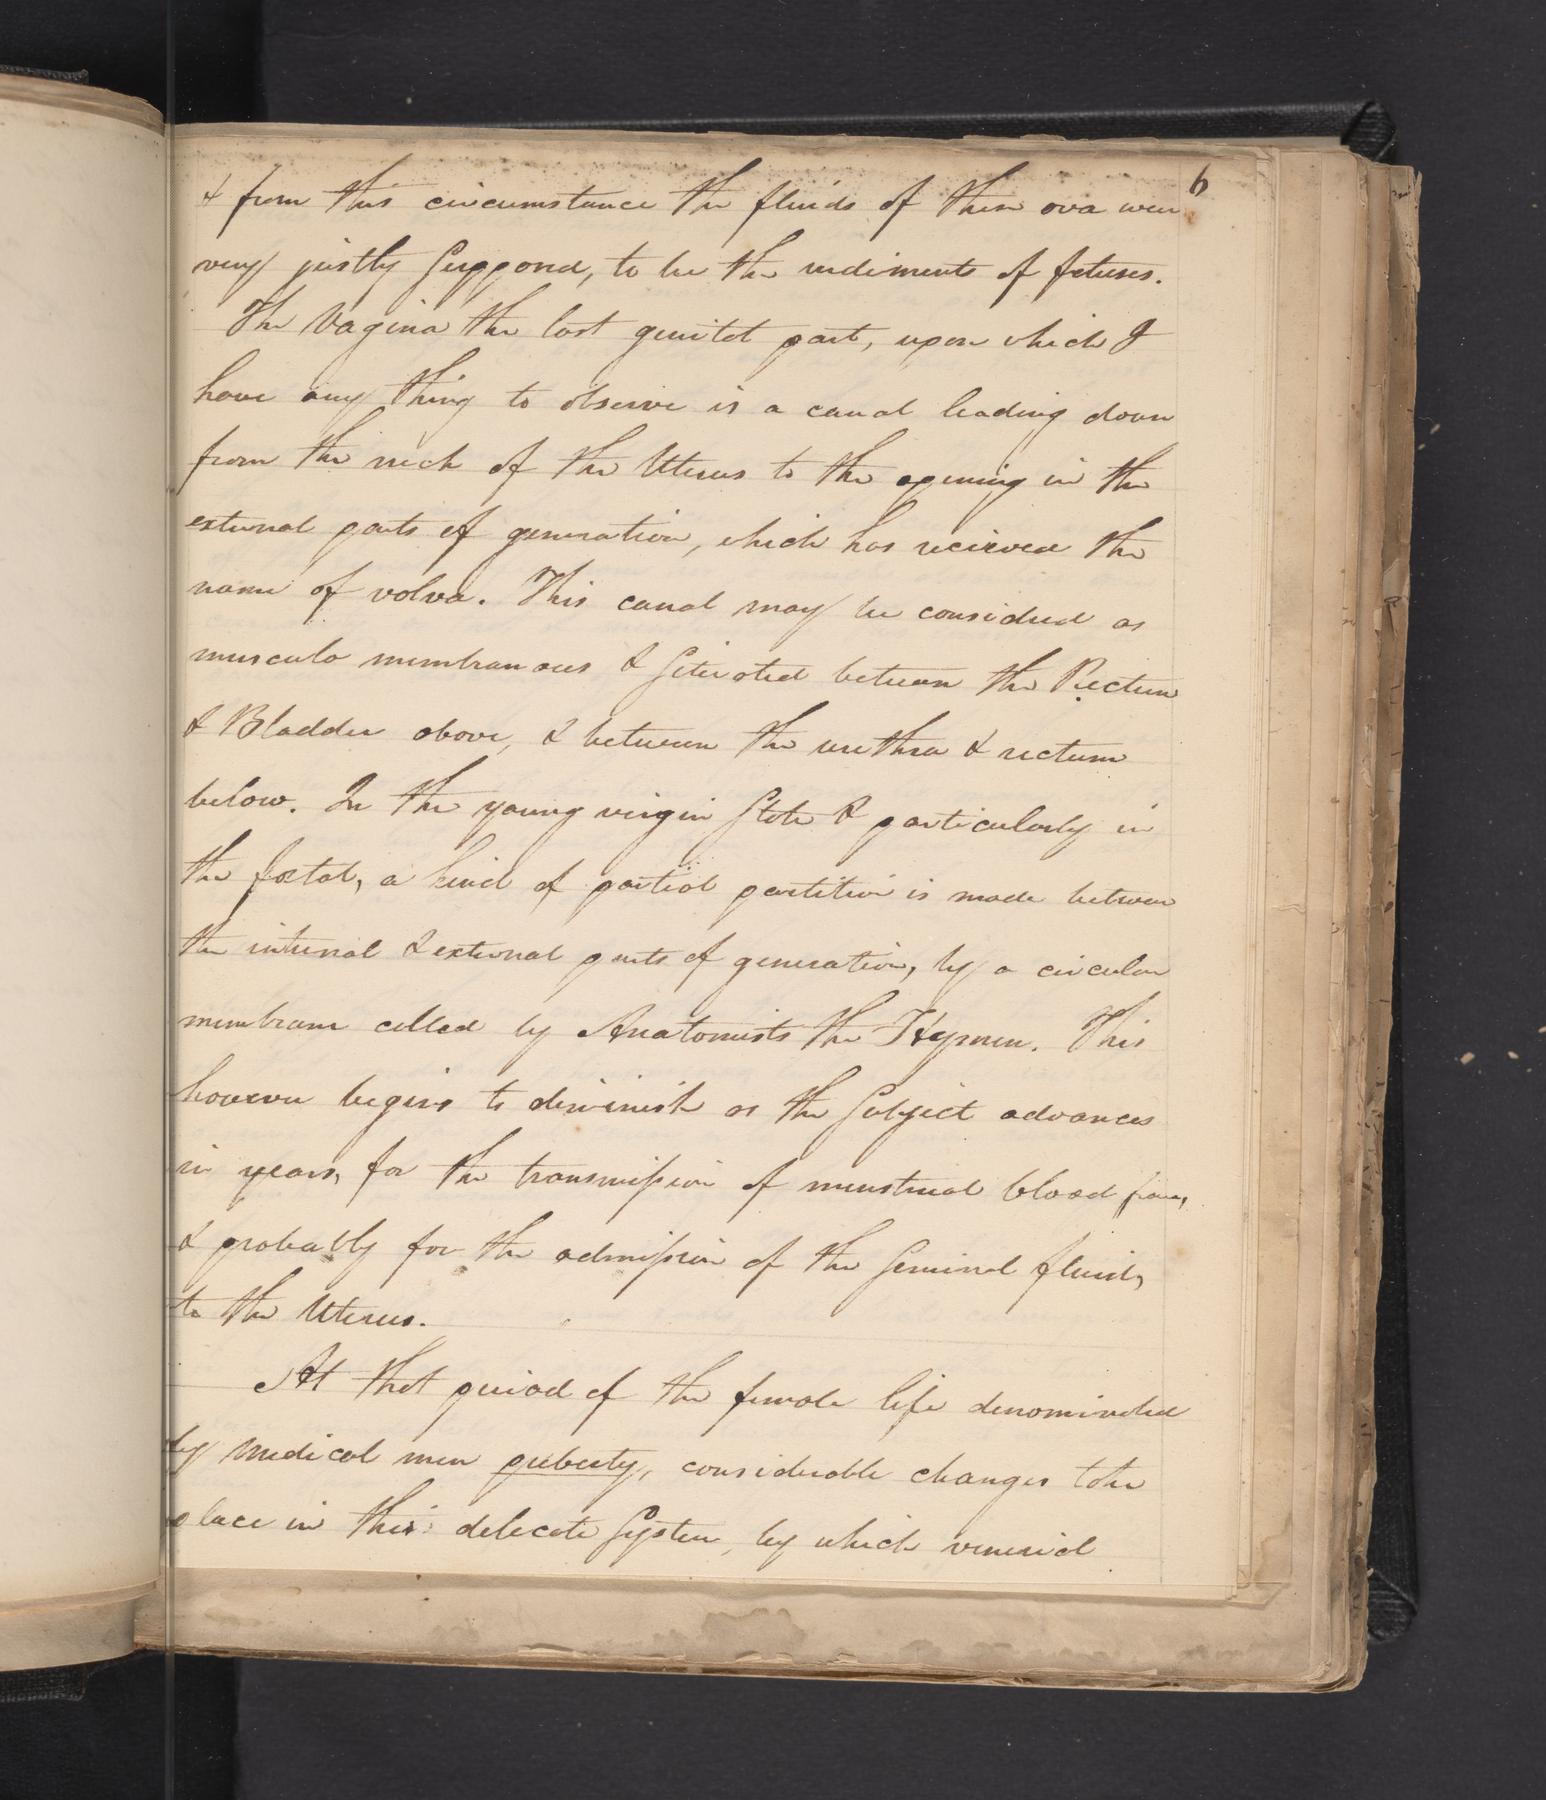 6
& from this circumstance the fluids of these ova were
very justly supposed, to be the rudiments of fetuses.
The Vagina the last genital part, upon which I
have any thing to observe is a canal leading down
from the neck of the Uterus to the opening in the
external parts of generation, which has recieved the
name of volva. This canal may be considred as
musculo membranous & situated between the Rectum
& Bladder above, & between the urethra & rectum
below. In the young virgin State & particularly in
the foetal, a kind of partial partition is made between
the internal & external parts of generation, by a circular
membrane called by Anatomists the Hymen. This
however begins to diminish as the Subject advances
in years, for the transmission of menstrual blood from,
& probably for the admission of the Seminal fluid,
to the Uterus.
At that period of the female life denominated
by medical men puberty, considerable changes take
place in this delecate System, by which venerial